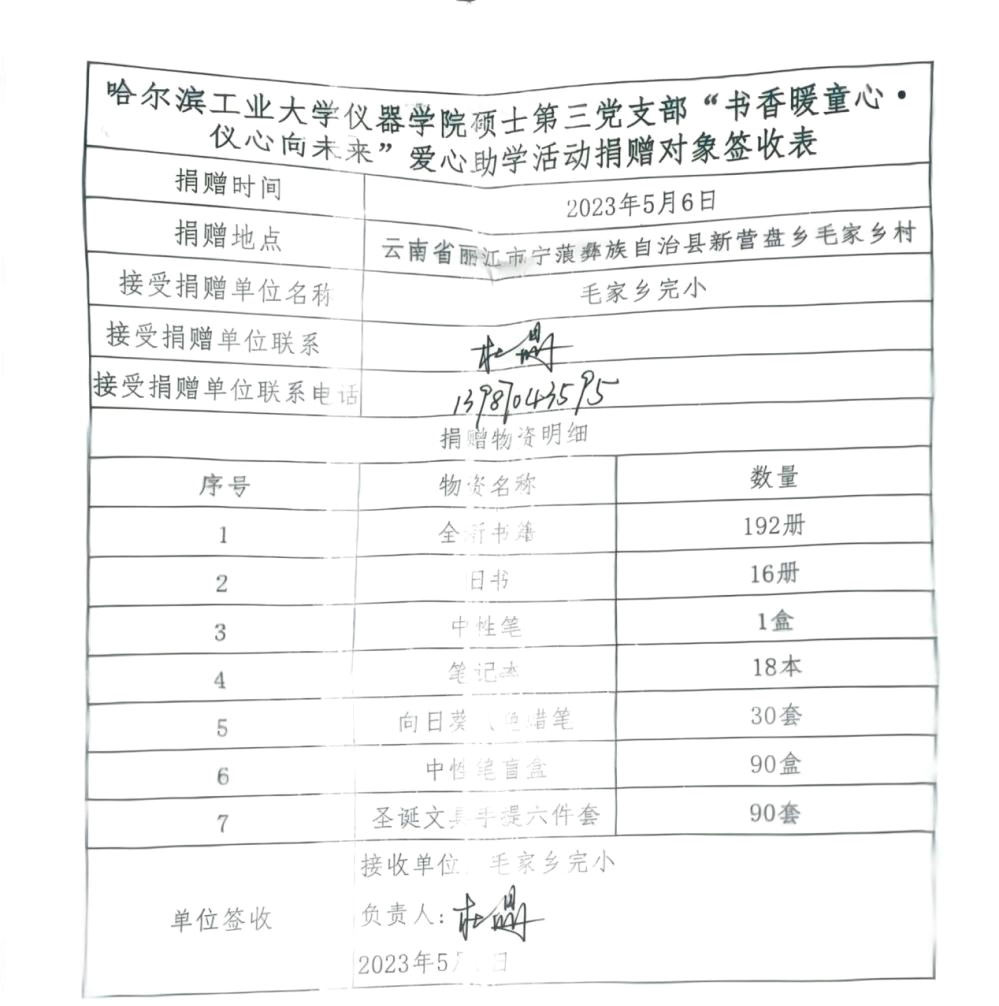 哈尔滨工业大学仪器学院硕士第三党支部“书香暖童心·
仪心向未来”爱心助学活动捐赠对象签收表
捐赠时间 2023年5月6日
捐赠地点 云南省丽江市宁蒗彝族自治县新营盘乡毛家乡村
接受捐赠单位名称 毛家乡完小
接受捐赠单位联系
接受捐赠单位联系电话 13987043595
捐赠物资明细
序号 物资名称 数量
1 全新书籍 192册
2 旧书 16册
3 中性笔 1盒
4 笔记本 18本
5 向日葵 色蜡笔 30套
6 中性笔盲盒 90盒
7 圣诞文具手提六件套 90套
单位签收
接收单位: 毛家乡完小
负责人:
2023年5月 日